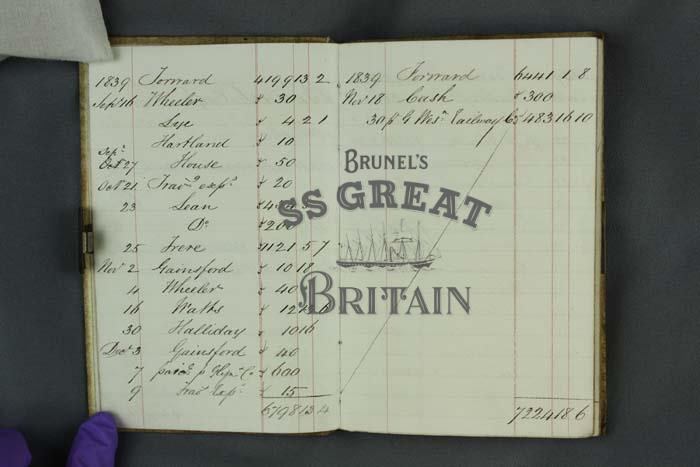 1839 Forward 4199 13 2
Sepr 16 Wheeler " 30
Lye " 4 2 1
Hartland " 10
Sepr
Octr 27 House " 50
Octr 21 Travg exps " 20
23 Lean
Do " 200
25 Frere 1121 5 7
Novr 2 Gainsford " 10 18
4 Wheeler " 40
16 Watts " 12
30 Halliday " 10 16
Decr 3 Gainsford " 40
7 paid p Co " 600
9 Travg Exps " 15
6798 13 4
1839 Forward 6441 1 8
Novr 18 Cash " 300
30 G Wesn Railway 483 16 10
7224 18 6
BRUNEL'S
SS GREAT
BRITAIN